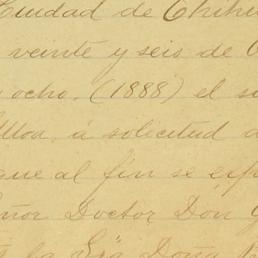 Ciudad de Chihu
veinte y seis de
ocho. (1888) el
Ulloa, á solicitud
que al fin se exp
eñor Doctor Don
la Sra Doña